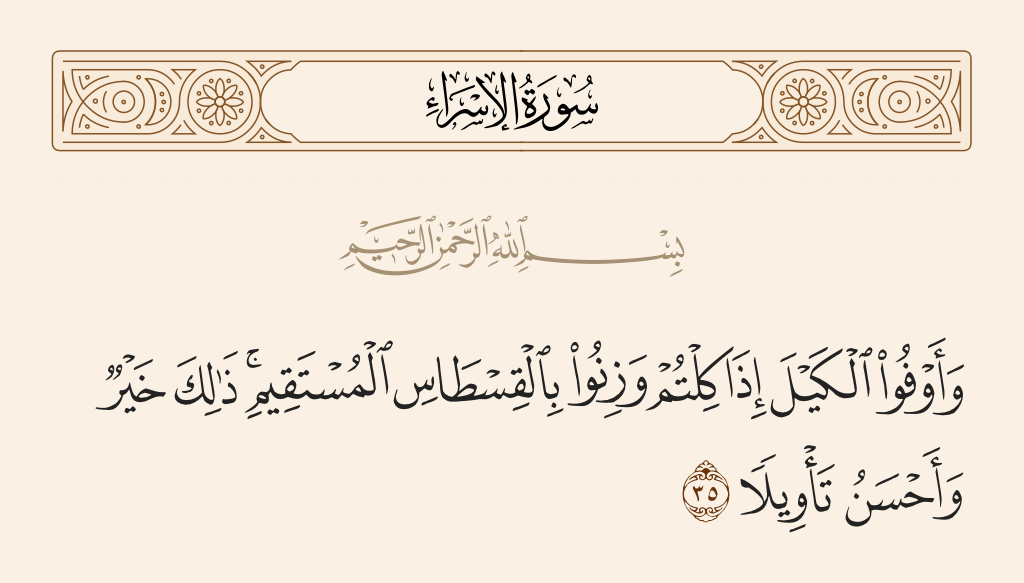 سُورَةُ الإِسْرَاءِ
بِسْمِ ٱللَّهِ ٱلرَّحْمَٰنِ ٱلرَّحِيمِ
وَأَوْفُوا۟ ٱلْكَيْلَ إِذَا كِلْتُمْ وَزِنُوا۟ بِٱلْقِسْطَاسِ ٱلْمُسْتَقِيمِ ۚ ذَٰلِكَ خَيْرٌ
وَأَحْسَنُ تَأْوِيلًا ٣٥